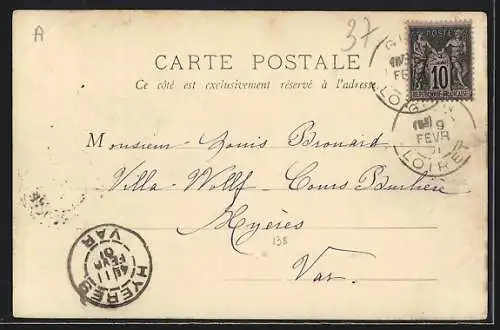 A
37
CARTE POSTALE
Ce côté est exclusivement réservé à l'adresse
POSTE
10
RÉPUBLIQUE FRANÇAISE
9
FEVR
LOIRET
Monsieur Louis Brouard
Villa-Wollf- Cours
Hyères
138
Var.
HYERES
11
FEVR
01
VAR